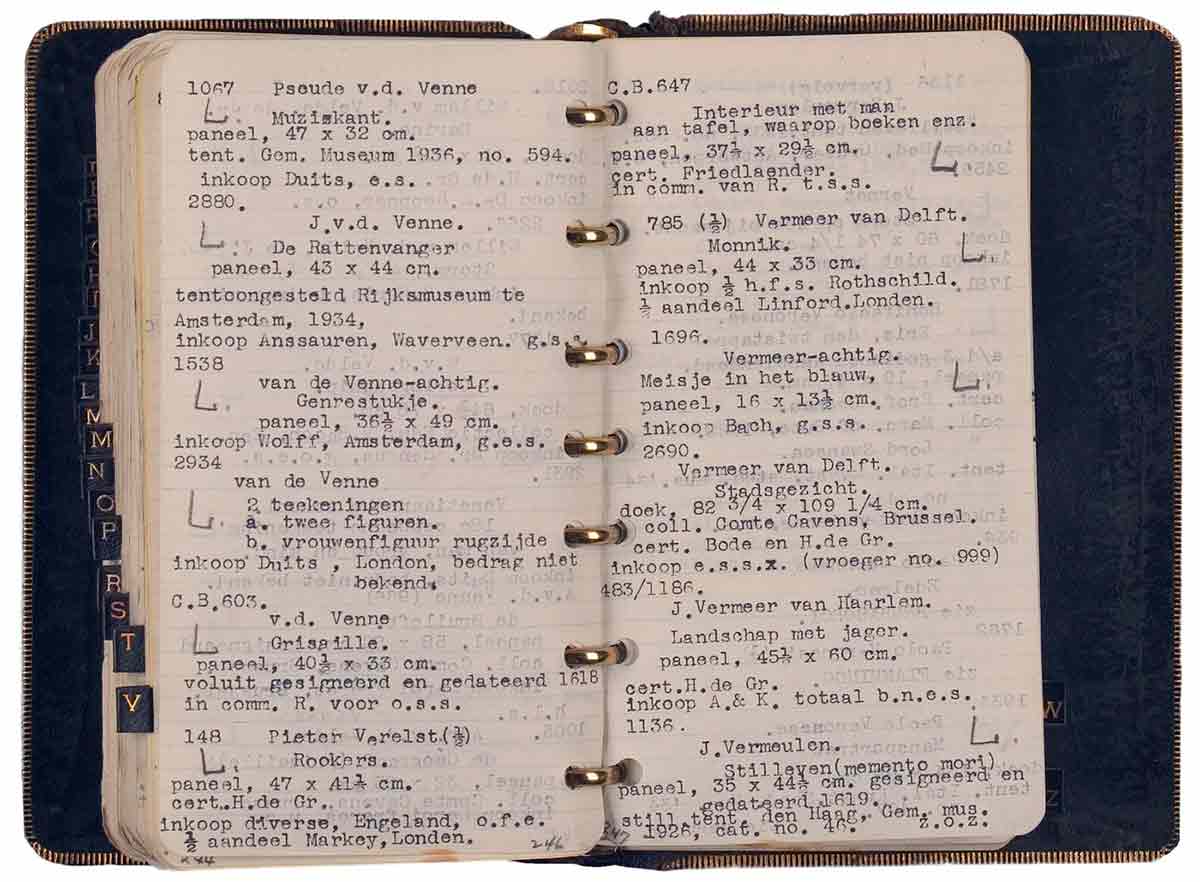 1067 Pseudo v.d. Venne
L.
Muzikant.
paneel, 47 x 32 cm.
tent. Gem. Museum 1936, no. 594.
inkoop Duits, e.s.
2880.
J.v.d. Venne.
L.
De Rattenvanger
paneel, 43 x 44 cm.
tentoongesteld Rijksmuseum te
Amsterdam, 1934,
inkoop Anssauren, Waverveen. g.s.s.
1538
van de Venne-achtig.
L.
Genrestukje.
paneel, 36½ x 49 cm.
inkoop Wolff, Amsterdam, g.e.s.
2934
van de Venne
L.
2 teekeningen
a. twee figuren.
b. vrouwenfiguur rugzijde
inkoop Duits, London, bedrag niet
bekend.
C.B.603.
v.d. Venne
L.
Grisaille.
paneel, 40½ x 33 cm.
voluit gesigneerd en gedateerd 1618
in comm. R. voor o.s.s.
148 Pieter Verelst.(½)
L.
Rookers.
paneel, 47 x 41½ cm.
cert.H.de Gr.
inkoop diverse, Engeland, o.f.e.
½ aandeel Markey,Londen.
246
C.B.647
Interieur met man
aan tafel, waarop boeken enz.
paneel, 37½ x 29½ cm.
L.
cert. Friedlaender.
in comm. van R. t.s.s.
785 (½) Vermeer van Delft.
Monnik.
L.
paneel, 44 x 33 cm.
inkoop ½ h.f.s. Rothschild.
½ aandeel Linford.Londen.
1696.
Vermeer-achtig.
Meisje in het blauw,
L.
paneel, 16 x 13½ cm.
inkoop Bach, g.s.s.
2690.
Vermeer van Delft.
Stadsgezicht.
doek, 82 3/4 x 109 1/4 cm.
coll. Comte Cavens, Brussel.
cert. Bode en H.de Gr.
inkoop e.s.s.x. (vroeger no. 999)
483/1186.
J.Vermeer van Haarlem.
Landschap met jager.
paneel, 45½ x 60 cm.
cert.H.de Gr.
inkoop A.& K. totaal b.n.e.s.
1136.
L.
J.Vermeulen.
Stilleven(memento mori)
paneel, 35 x 44½ cm. gesigneerd en
gedateerd 1619.
still.tent. den Haag, Gem. mus.
1926, cat. no. 46. z.o.z.
J
K
L
M
M
N
O
P
R
S
T
V
W
Z